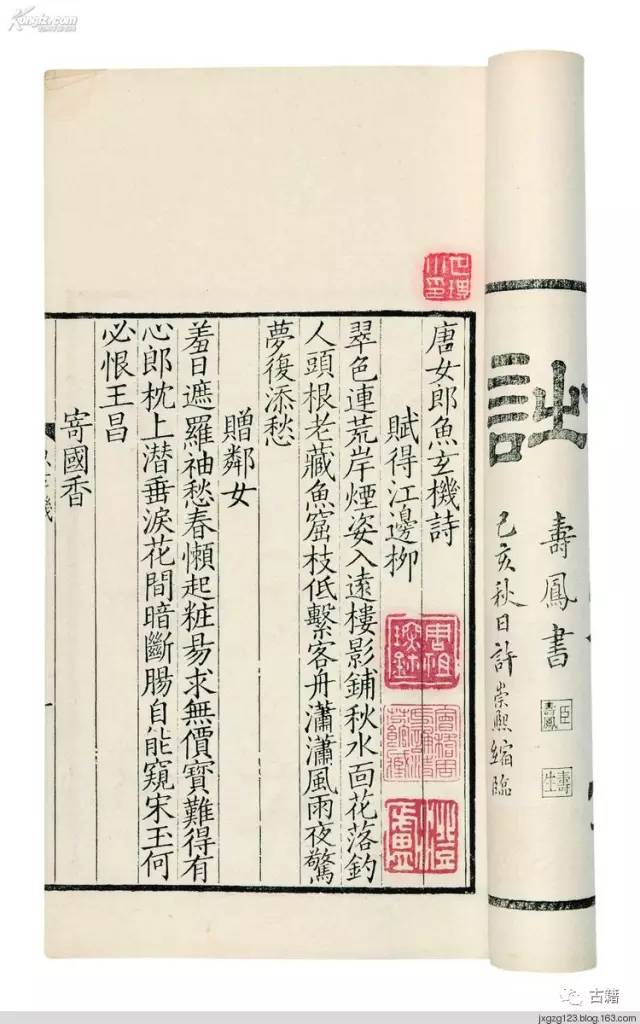 壽鳳書
臣壽鳳
壽生
己亥秋日許崇熙縮臨
唐女郎魚玄機詩
賦得江邊柳
翠色連荒岸煙姿入遠樓影鋪秋水面花落釣
人頭根老藏魚窟枝低繫客舟瀟瀟風雨夜驚
夢復添愁
贈鄰女
羞日遮羅袖愁春懶起粧易求無價寶難得有
心郎枕上潜垂淚花間暗斷腸自能窺宋玉何
必恨王昌
寄國香
一
古籍
jxgzg123.blog.163.com
Kongfz.com